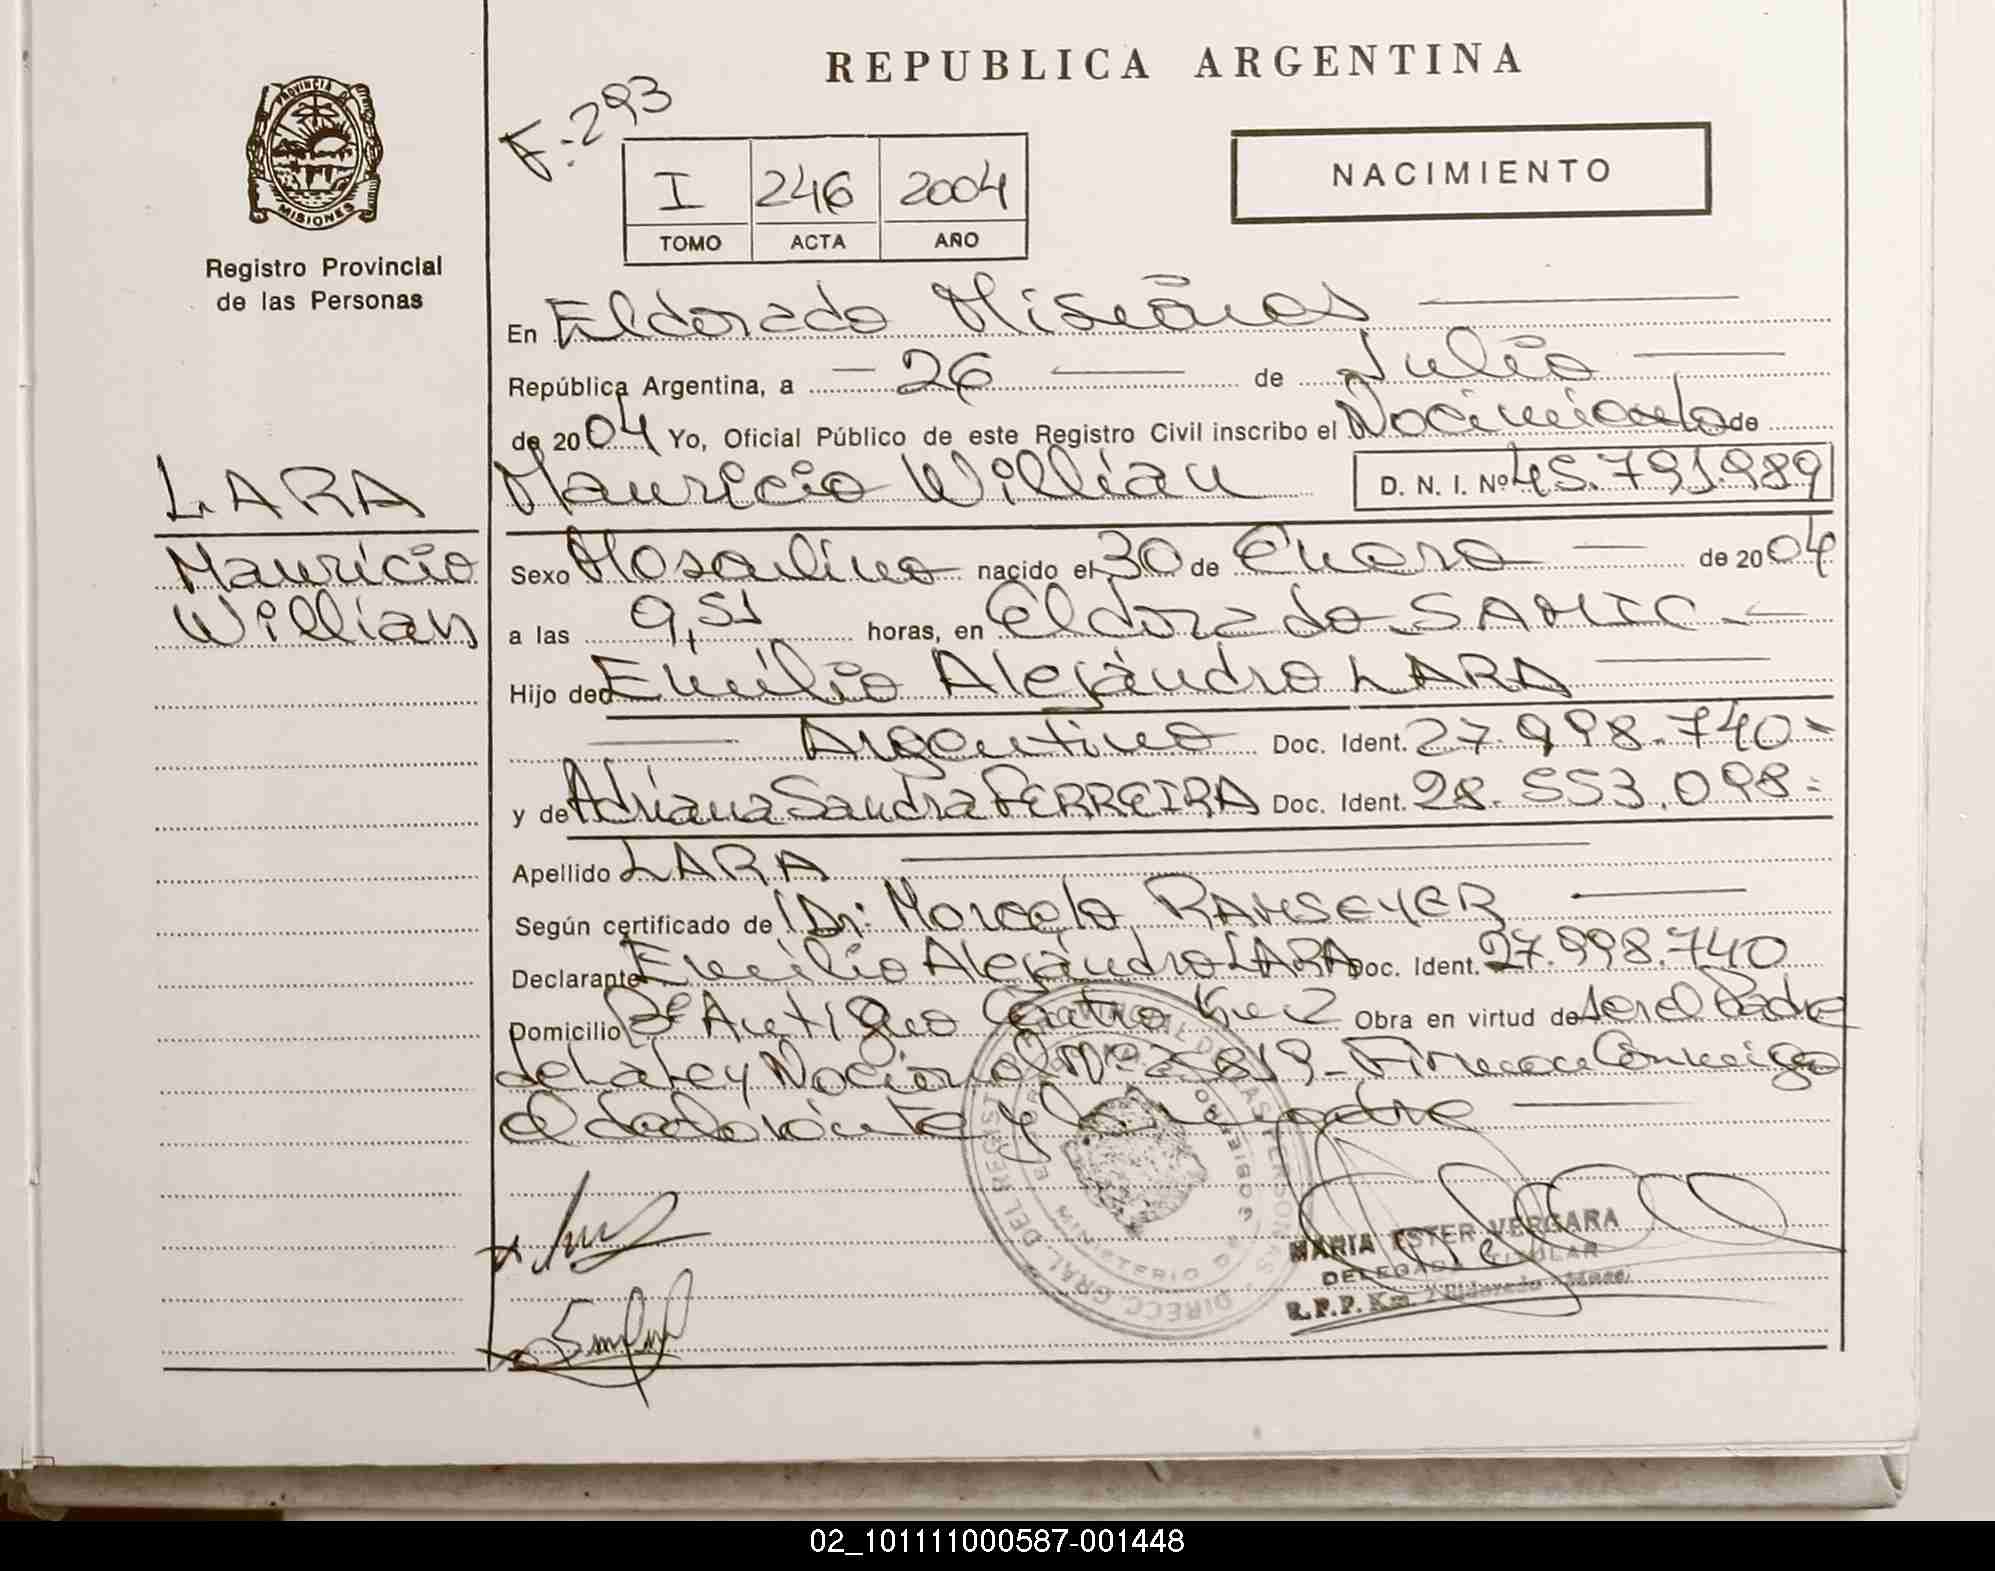 REPUBLICA ARGENTINA
F:293
I 246 2004
TOMO ACTA AÑO
NACIMIENTO
PROVINCIA DE
MISIONES
Registro Provincial
de las Personas
En Eldorado Misiones
República Argentina, a - 26 - de Julio
de 2004 Yo, Oficial Público de este Registro Civil inscribo el Nacimiento de
LARA
Mauricio Willian D. N. I. Nº 45.791.989
Mauricio
Willian
Sexo Masculino nacido el 30 de Enero de 2004
a las 9,51 horas, en Eldorado-SAMIC-
Hijo de Emilio Alejandro LARA
Argentino Doc. Ident. 27.998.740-
y de Adriana Sandra FERREIRA Doc. Ident. 28.553.098-
Apellido LARA
Según certificado de Dr: Marcelo RAMSEYER
Declarante Emilio Alejandro LARA Doc. Ident. 27.998.740
Domicilio Bº Antiguo Km 2 Obra en virtud de ser el Padre
de La Ley Nacional Nº 25819- Firman Conmigo
el declarante y la madre
DIRECC. GRAL. DEL REGIST. PROVINCIAL DE LAS PERSONAS
MINISTERIO DE GOBIERNO
MARIA ESTER VERGARA
DELEGADA TITULAR
R.P.P. Km. 7 Eldorado - Mnes.
02_101111000587-001448